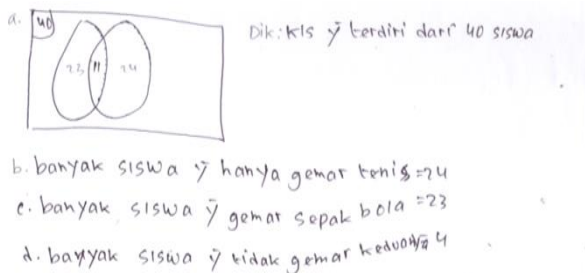 a. 40
Dik: Kls ȳ terdiri dari 40 siswa
23 11 24
b. banyak siswa ȳ hanya gemar tenis = 24
c. banyak siswa ȳ gemar sepak bola = 23
d. banyak siswa ȳ tidak gemar keduanya 4